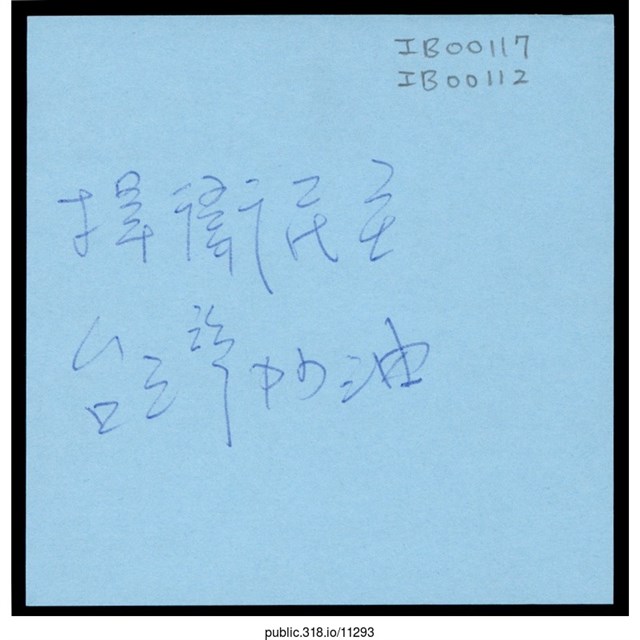 IB00117
IB00112
捍衛民主
台灣加油
public.318.io/11293